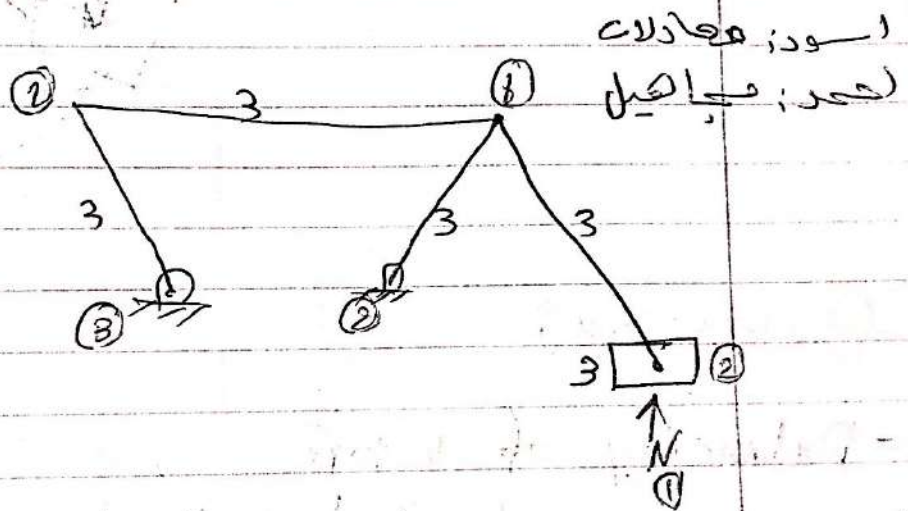 اسود: معادلات
احمر: مجاهيل
② 3 ⑧
3 3 3
③ ② 3 ②
N
①